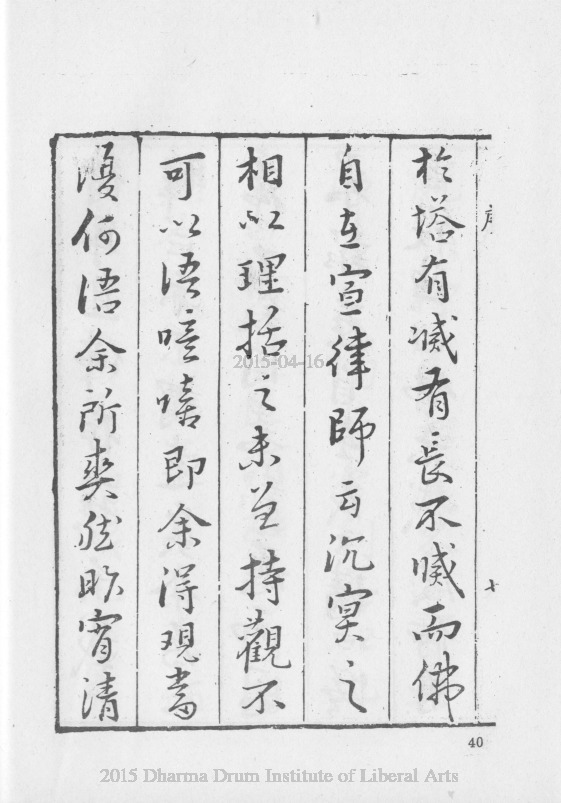 序
七
於塔有減有長不減而佛
自在宣律師云沉冥之
相以理括之未益持觀不
可以語喑嘻即余得現當
復何語余所爽然昨宵清
40
2015-04-16
2015 Dharma Drum Institute of Liberal Arts